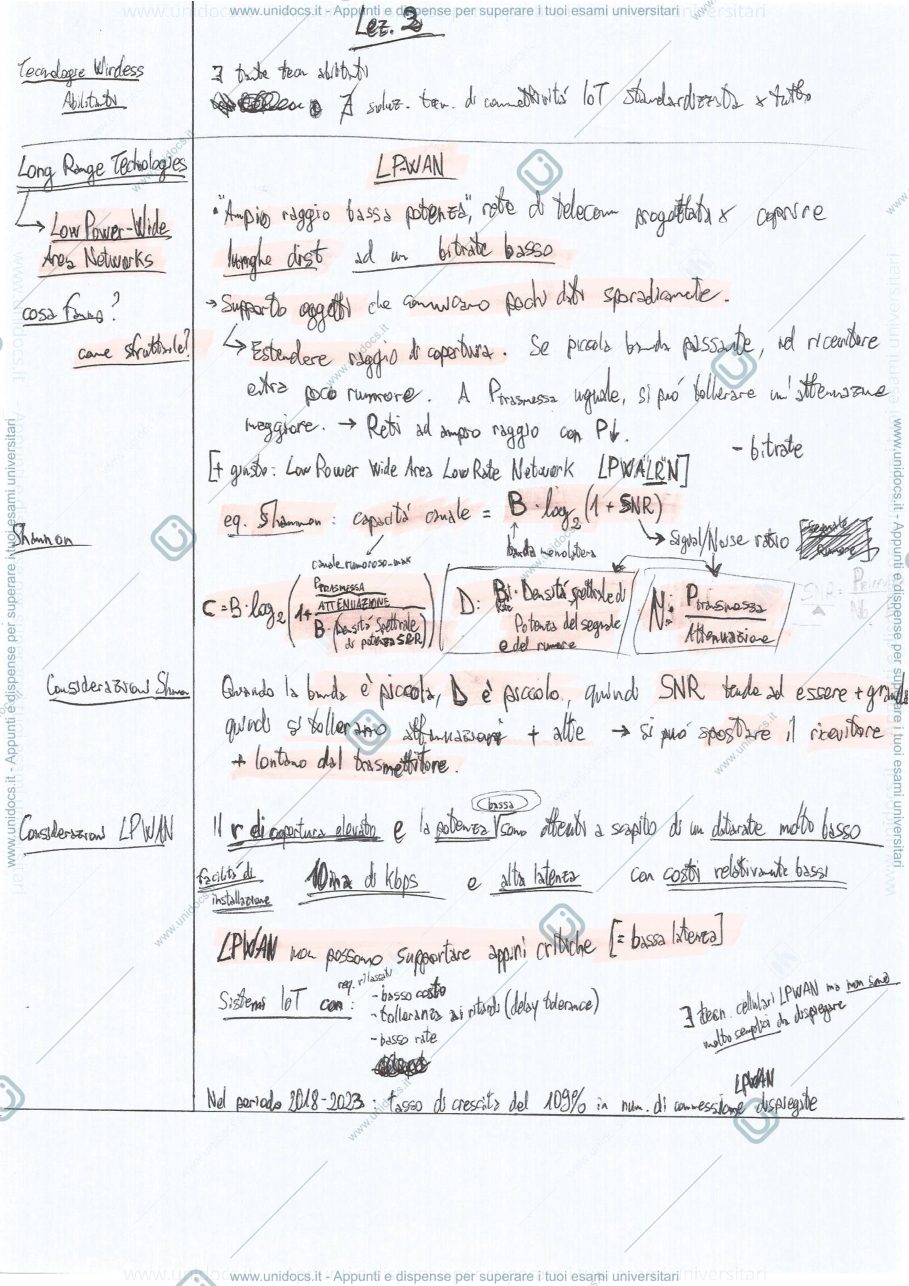 www.unidocs.it - Appunti e dispense per superare i tuoi esami universitari
Lez. 2
Tecnologie Wireless
Abilitanti
∃ tante tecn abilitanti
∄ soluz. tecn. di connettività IoT standardizzata x tutto
Long Range Technologies
LPWAN
→ Low Power-Wide
Area Networks
• "Ampio raggio bassa potenza", rete di telecom progettata x coprire
lunghe dist ad un bitrate basso
cosa fanno?
→ Supporto oggetti che comunicano pochi dati sporadicamente.
come strutturale?
→ Estendere raggio di copertura. Se piccola banda passante, nel ricevitore
entra poco rumore. A Ptrasmessa uguale, si può tollerare un'attenuazione
maggiore. → Reti ad ampio raggio con P↓.
- bitrate
[+ giusto: Low Power Wide Area Low Rate Network LPWA"LR"N]
Shannon
eq. Shannon: capacità canale = B · log2 (1 + SNR)
banda
→ Signal/Noise ratio
canale rumoroso-max
C = B · log2 (1+ PTRASMESSA
ATTENUAZIONE
B · Densità Spettrale
di potenza)
D: B · Densità spettrale di
Potenza del segnale
e del rumore
N: Ptrasmessa
Attenuazione
Considerazioni Shannon
Quando la banda è piccola, D è piccolo, quindi SNR tende ad essere + grande
quindi si tollerano attenuazioni + alte → si può spostare il ricevitore
+ lontano dal trasmettitore.
Considerazioni LPWAN
bassa
Il r di copertura elevato e la potenza sono ottenuti a scapito di un datarate molto basso
facilità di
installazione
10ina di kbps e alta latenza con costi relativamente bassi
LPWAN non possono supportare appini critiche [= bassa latenza]
req. rilassati
Sistemi IoT con: - basso costo
- tolleranza ai ritardi (delay tolerance)
- basso rate
∃ tecn. cellulari LPWAN ma non sono
molto semplici da dispiegare
LPWAN
Nel periodo 2018-2023: tasso di crescita del 109% in num. di connessione dispiegate
www.unidocs.it - Appunti e dispense per superare i tuoi esami universitari